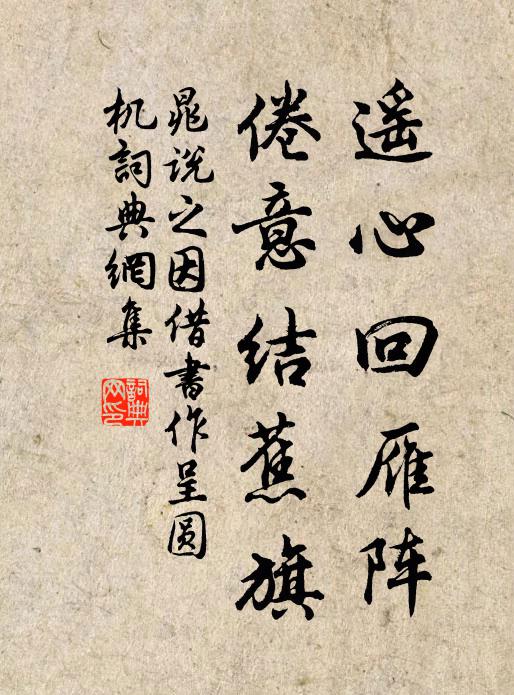 遥心回雁阵
倦意结蕉旗
晁说之因借书作呈圆
机詞典網集
詞典
网印